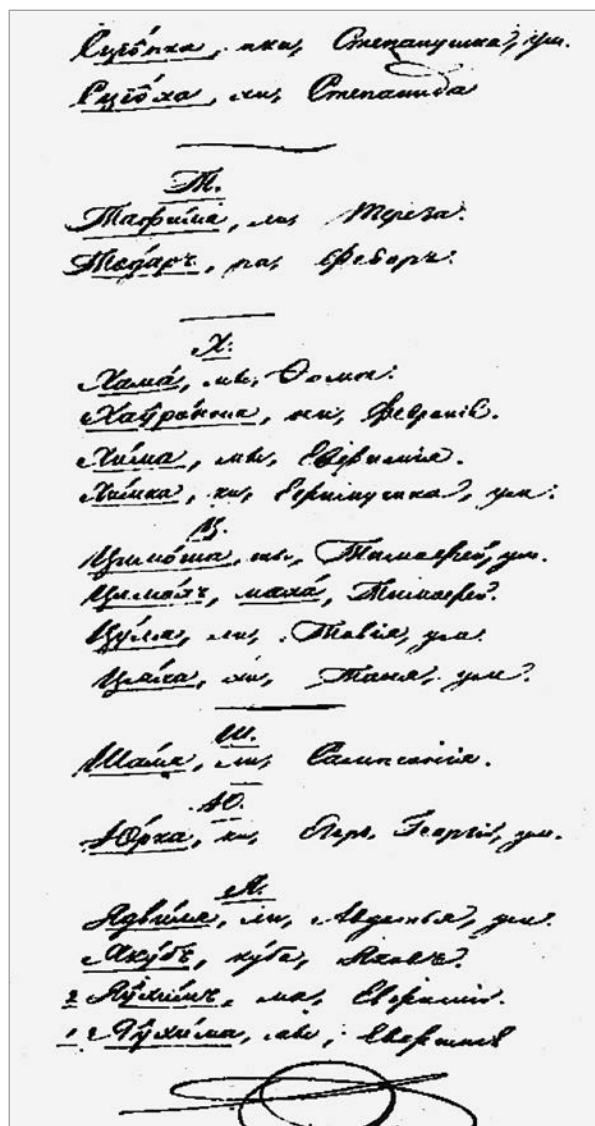 Сцёпка, пки, Степанушка, ум.
Сцёха, хи, Степанида
Т.
Тафи́ла, лы, Тереза.
То́даръ, ра, Ѳедоръ.
Х.
Хама́, мы, Ѳома.
Хаўро́ньня, ни, Февронія.
Хи́ма, мы, Евфимія.
Хи́мка, ки, ум.
Ц.
Цимо́ша, шы, Тимоѳей, ум.
Цимо́хъ, маха́, Тимоѳей.
Цу́ля, ли, ум.
Ця́ха, хи, Таня, ум.
Ш.
Ша́мя, Сампсонія.
Ю.
Ю́рка, ки, Егоръ, Георгій, ум.
Я.
Ядви́ля, ли, Авдотья, ум.
Яку́бъ, ку́ба, Яковъ.
2 Яўхи́мъ, ма, Евфимій.
1 Яўхи́ма, мы,